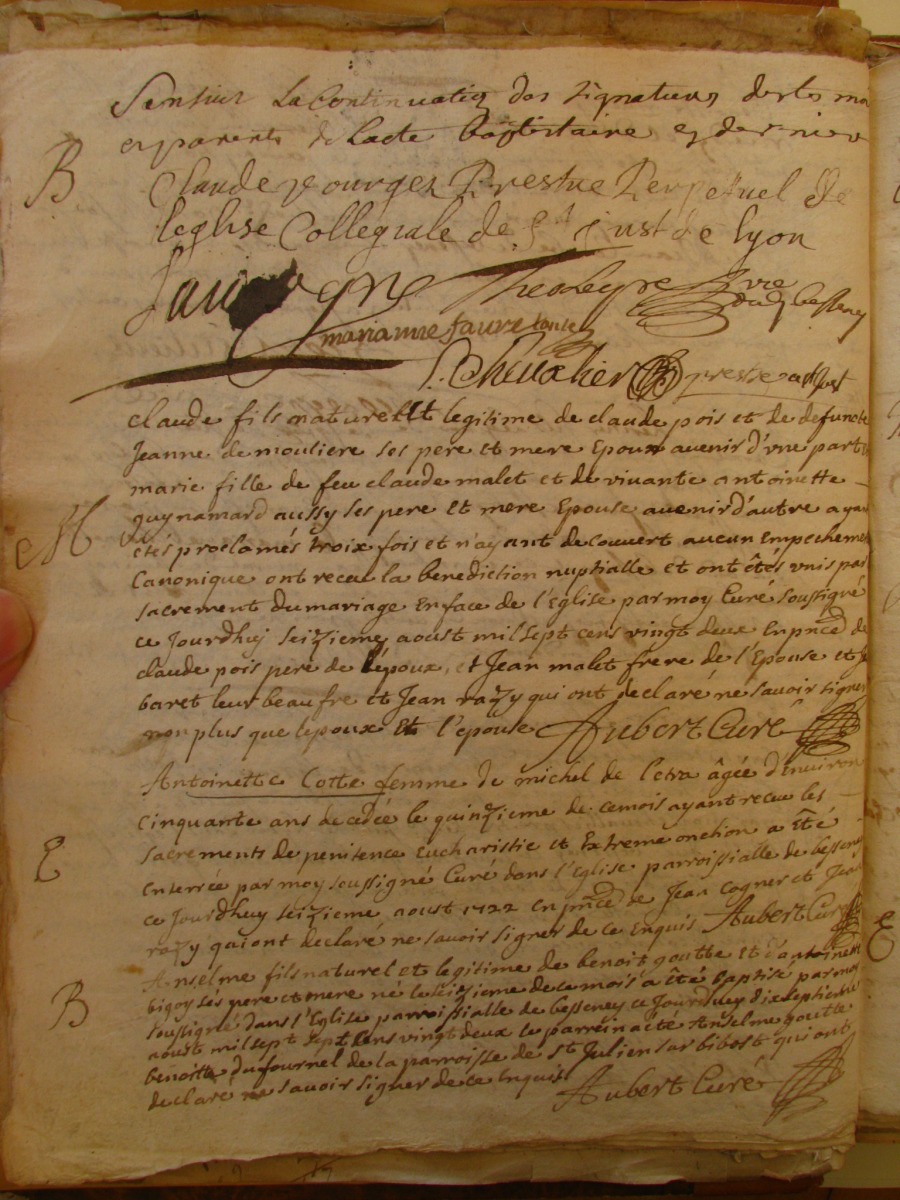 Sensuit la Continuation des signatures des
parents de lacte baptistaire cy dernier
B
Claude yourgez Prestre Perpetuel de
leglise Collegiale de St just de lyon
Theoleyre vic
marianne faure
Chevalier prestre a St Just
claude fils naturel Et legitime de claude pois et de defuncte
Jeanne de mouliere ses pere et mere Epoux avenir d'vne part et
marie fille de feu claude malet et de vivante antoinette
M
guynamard aussy ses pere et mere Epouse avenir d'autre ayan
etés proclamés troix fois et n'ayant decouvert aucun Empecheme
Canonique ont receu la benediction nuptialle et ont êtés vnis par
sacrement du mariage En face de l'Eglise par moy Curé soussigné
ce Jourdhuy seizieme aoust mil sept cens vingt deux En pñce de
claude pois pere de l'époux, et Jean malet frere de l'Epouse et
baret leur beau fre et Jean razy qui ont declaré ne savoir signer
non plus que lepoux Et l'epouse Aubert Curé
Antoinette Cotte femme de michel de letra âgée d'Environ
cinquante ans decedée le quinzieme de ce mois ayant receu les
sacrements de penitence Eucharistie et Extreme onction a Eté
E
Enterrée par moy soussigné Curé dans l'Eglise parroissialle de bessenay
ce Jourdhuy seizieme aoust 1722 En pñce de Jean Cogner et Jean
razy qui ont declaré ne savoir signer de ce Enquis Aubert Curé
Anselme fils naturel et legitime de benoit goutte et d'antoinette
B
bigoy ses pere et mere né le seizieme de ce mois a été baptisé par moy
soussigné dans l'Eglise parroissialle de besseney ce Jourdhuy dixseptieme
aoust mil sept cens vingt deux le parrein a été Anselme goutte
benoitte du fournel de la parroisse de St Julien sur bibost qui ont
declaré ne savoir signer de ce Enquis Aubert Curé